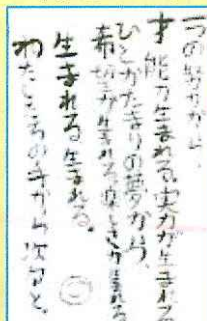 一つの努力から、
才能が生まれる実力が生まれる
ひとかたまりの夢から、
希望が生まれる楽しさが生まれる
生まれる生まれる。
わたしたちの手から次つぎと。